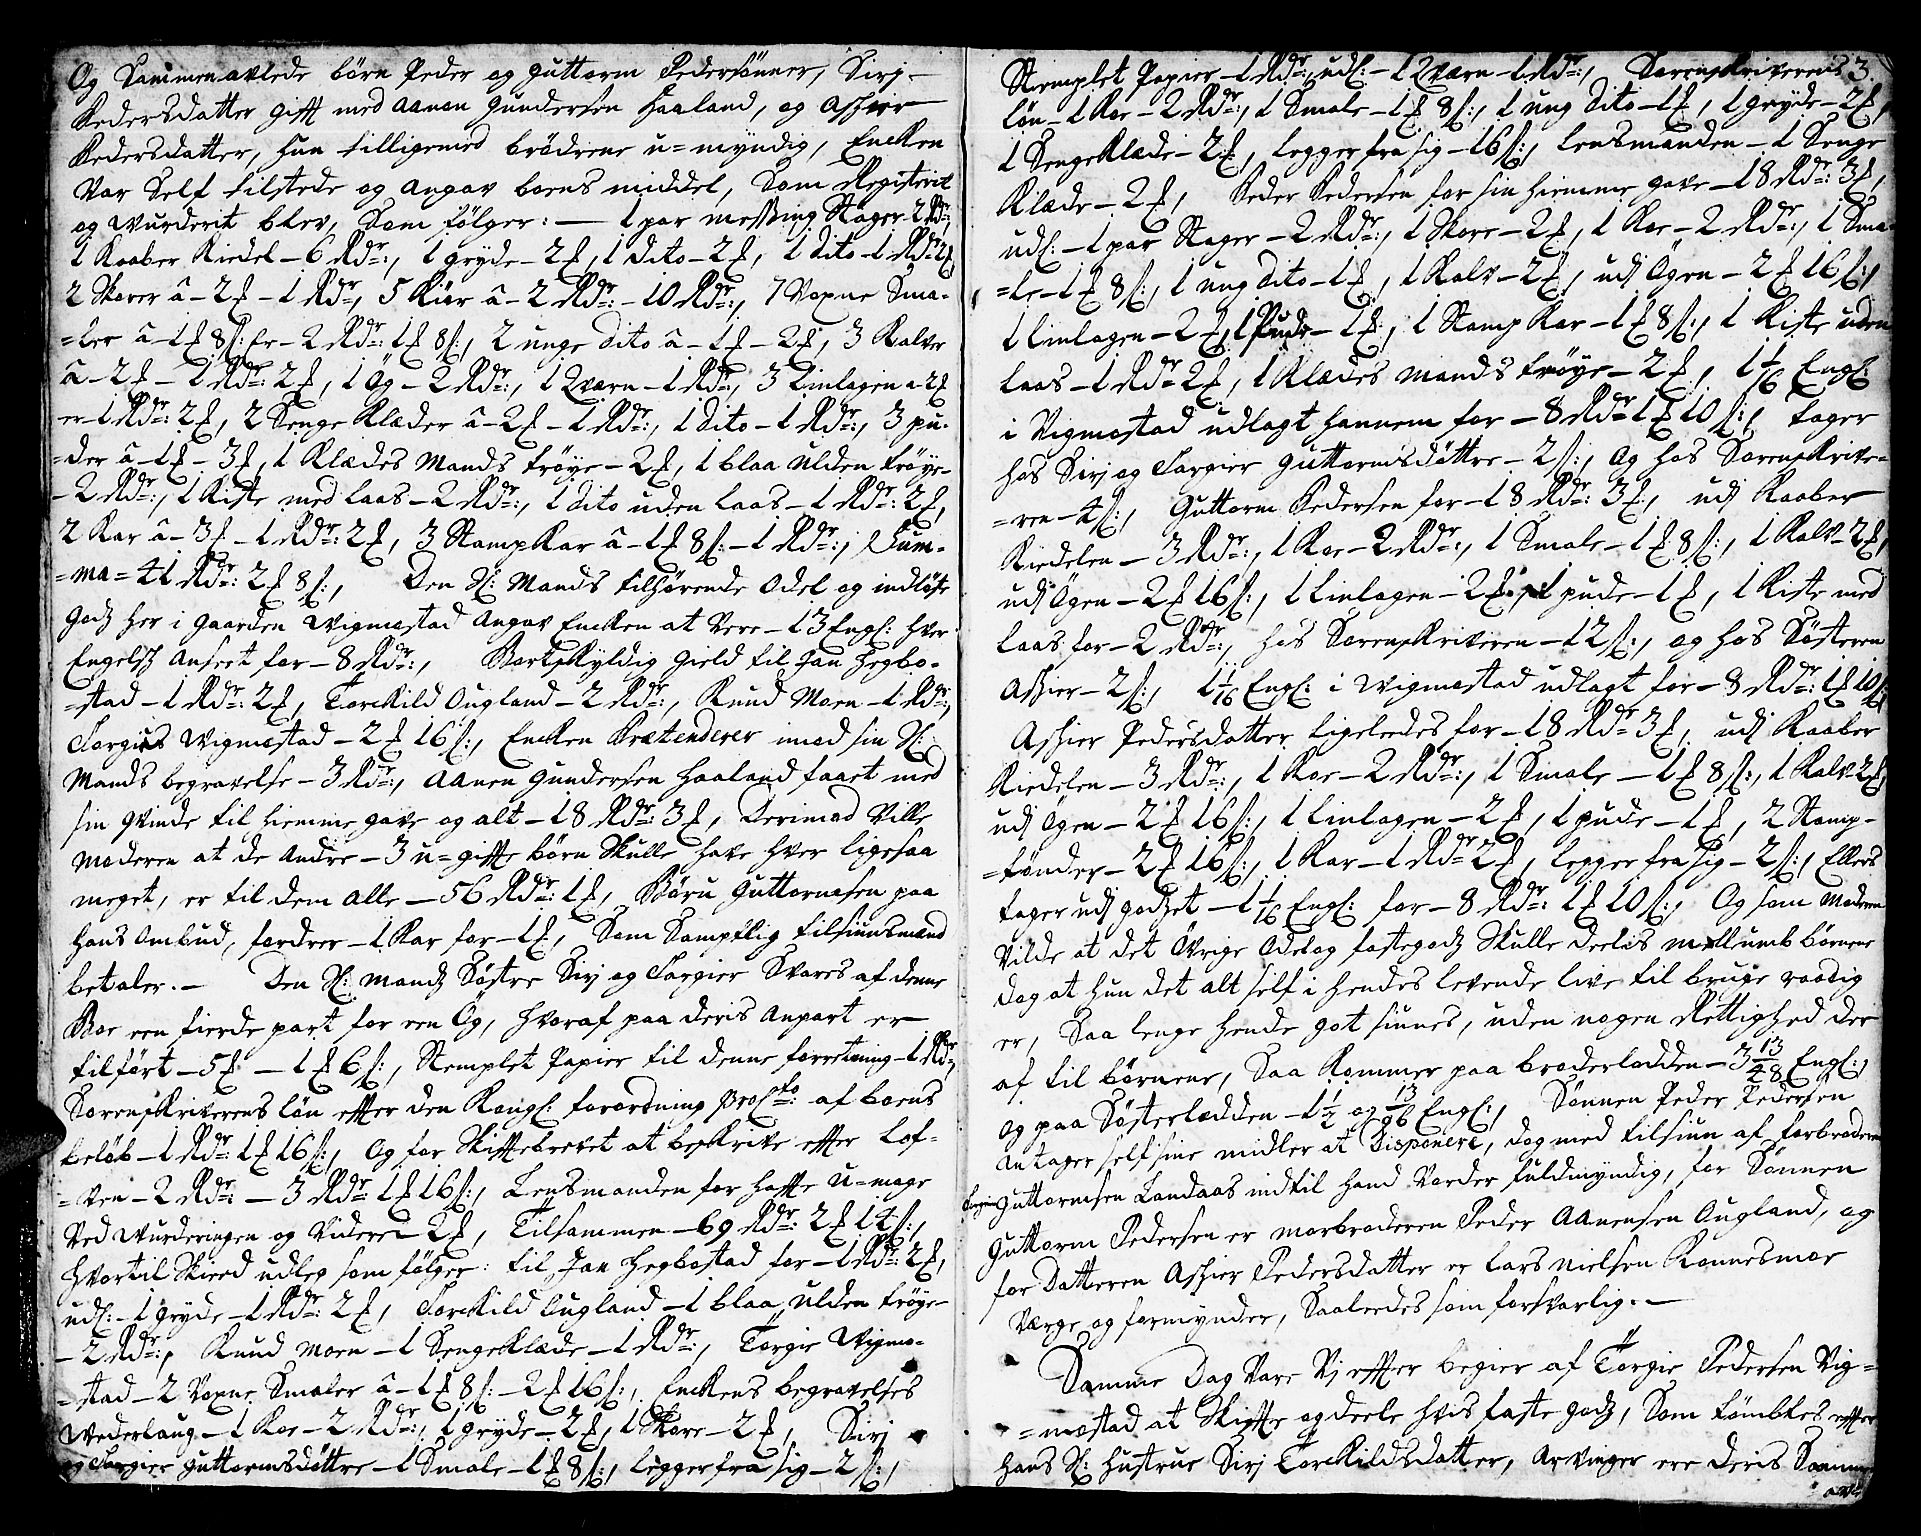 Og Sammenavlede børn Peder og Guttorm Pedersønner, Sirj-
Pedersdatter gift med Aanen Gundersen Haaland, og Asgier
Pedersdatter, hun tilligemed brödrene u=myndig, Encken
Var Self tilstede og angav boens middel, Som Registerit
og Wurderit blev, Som fölger: — 1 par messing Stager 2 Rdr:,
1 Kaaber Kiedel – 6 Rdr:, 1 gryde – 2 ℔, 1 dito – 2 ℔, 1 dito – 1 Rdr: 2 ℔,
2 Skorer â – 2 ℔ – 1 Rdr:, 5 Kiör â – 2 Rdr: – 10 Rdr:, 7 Voxne Sma-
=ler â – 1 ℔ 8 ß: er – 2 Rdr: 1 ℔ 8 ß:, 2 unge dito â – 1 ℔ – 2 ℔, 3 Kalve
â – 2 ℔ – 1 Rdr: 2 ℔, 1 Ög – 2 Rdr:, 1 Qværn – 1 Rdr:, 3 Linlagen a 2 ℔
er – 1 Rdr: 2 ℔, 2 Senge Klæder â – 2 ℔ – 1 Rdr:, 1 Dito – 1 Rdr:, 3 pu-
=der â – 1 ℔ – 3 ℔, 1 Klædes Mands tröye – 2 ℔, 1 blaa Ulden tröye-
– 2 Rdr:, 1 Kiste med laas – 2 Rdr:, 1 dito uden laas – 1 Rdr: 2 ℔,
2 Kar â – 3 ℔ – 1 Rdr: 2 ℔, 3 StampKar â – 1 ℔ 8 ß: – 1 Rdr:, Sum-
=ma = 41 Rdr: 2 ℔ 8 ß:, Den Sl: Mands tilhörende Odel og indlöste
Godz her i gaarden Wigmostad angav Encken at Vere – 13 Engl: hver
Engelsk Anseet for – 8 Rdr:, Bortskyldig gield til Jan Hegbo-
=stad – 1 Rdr: 2 ℔, Torckild Ougland – 2 Rdr:, Knud Moen – 1 Rdr:,
Torgius Wigmostad – 2 ℔ 16 ß:, Encken Prætenderer imod sin Sl:
Mands begravelse – 3 Rdr:, Aanen Gundersen Haaland faaet med
sin qvinde til hiemme gave og alt – 18 Rdr: 3 ℔, Derimod Ville
Moderen at de andre – 3 u=gifte börn Skulle have hver ligesaa
meget, er til dem alle – 56 Rdr: 1 ℔, Böru Guttormsen paa
hans Ombud, fordrer – 1 Kar for – 1 ℔, Som Samptlig tilsiunsmænd
betaler. – Den Sl: mandz Söstre Sirj og Torgier Svares af denne
Boe een fierde part for een Ög, hvoraf paa deris anpart er
tilfört – 5 ℔ – 1 ℔ 6 ß:, Stemplet Papier til denne forretning – 1 Rdr:
Sorenskriverens lön efter den Kongl: forordning Pro Cto: af boens
belöb – 1 Rdr: 1 ℔ 16 ß:, Og for Skiftebrevet at beskrive efter Lof-
=ven – 2 Rdr: – 3 Rdr: 1 ℔ 16 ß:, Lensmanden for hafte u=mage
Ved Wurderingen og Videre – 2 ℔, Tilsammen – 69 Rdr: 2 ℔ 14 ß:,
Hvortil Skieed udleg som fölger: til Jan Hegbostad for – 1 Rdr: 2 ℔,
udl: – 1 gryde – 1 Rdr: 2 ℔, Torckild Ougland – 1 blaa Ulden tröye-
– 2 Rdr:, Knud Moen – 1 SengeKlæde – 1 Rdr:, Torgie Wigmo-
=stad – 2 Voxne Smaler â – 1 ℔ 8 ß: – 2 ℔ 16 ß:, Enckens begravelses
Wederlaug – 1 Koe – 2 Rdr:, 1 gryde – 2 ℔, 1 Skore – 2 ℔, Sirj
og Torgier Guttormsdöttre – 1 Smale – 1 ℔ 8 ß:, legger fra sig – 2 ß:,
Stemplet Papier – 1 Rdr:, udl: – 1 Qværn – 1 Rdr:, Sorenskriverens 3.
lön – 1 Koe – 2 Rdr:, 1 Smale – 1 ℔ 8 ß:, 1 ung dito – 1 ℔, 1 gryde – 2 ℔,
1 SengeKlæde – 2 ℔, legger fra sig – 16 ß:, Lensmanden – 1 Senge
Klæde – 2 ℔, Peder Pedersen for sin hiemme gave – 18 Rdr: 3 ℔,
udl: – 1 par Stager – 2 Rdr:, 1 Skore – 2 ℔, 1 Koe – 2 Rdr:, 1 Sma-
=le – 1 ℔ 8 ß:, 1 ung dito – 1 ℔, 1 Kalv – 2 ℔, udj Ögen – 2 ℔ 16 ß:,
1 Linlagen – 2 ℔, 1 Pude – 1 ℔:, 1 StampKar – 1 ℔ 8 ß:, 1 Kiste uden
laas – 1 Rdr: 2 ℔, 1 Klædes mands tröye – 2 ℔, 1 1/16 Engl:
i Wigmostad udlagt hannem for – 8 Rdr: 1 ℔ 10 ß:, tager
hos Sirj og Torgier Guttormsdöttre – 2 ß:, og hos Sorenskrive=
=ren – 4 ß:, Guttorm Pedersen for – 18 Rdr: 3 ℔, udj Kaaber
Kiedelen – 3 Rdr:, 1 Koe – 2 Rdr:, 1 Smale – 1 ℔ 8 ß:, 1 Kalv – 2 ℔,
udj Ögen – 2 ℔ 16 ß:, 1 Linlagen – 2 ℔, 1 pude – 1 ℔, 1 Kiste med
laas for – 2 Rdr:, hos Sorenskriveren – 12 ß:, og hos Sösteren
Asgier – 2 ß:, 1 1/16 Engl: i Wigmostad udlagt for – 8 Rdr: 1 ℔ 10 ß:
Asgier Pedersdatter ligeledes for – 18 Rdr: 3 ℔, udj Kaaber
Kiedelen – 3 Rdr:, 1 Koe – 2 Rdr:, 1 Smale – 1 ℔ 8 ß:, 1 Kalv 2 ℔,
udj Ögen – 2 ℔ 16 ß:, 1 Linlagen – 2 ℔, 1 pude – 1 ℔, 2 Stamp-
=tönder – 2 ℔ 16 ß:, 1 Kar – 1 Rdr: 2 ℔, legger fra sig – 2 ß:, Ellers
tager udj godzet – 1 1/16 Engl: for – 8 Rdr: 1 ℔ 10 ß:, Og som Moderen
Vilde at det Övrige Odel og faste godz Skulle deelis mellumb börnene
dog at hun det alt self i hendes levende live til bruge raadig
er, Saa lenge hende got siunes, uden nogen Rettighed der
af til börnene, Saa Kommer paa broderlodden – 3 13/48 Engl:,
og paa Sösterlodden – 1 1/2 og 13/96 Engl:, Sönnen Peder Pedersen
antager self sine midler at Disponere, dog med tilsiun af farbroderen
Guttormsen Landaas indtil hand Vorder fuldmyndig, for Sönnen
Guttorm Pedersen er morbroderen Peder Aanensen Ougland, og
for Datteren Asgier Pedersdatter er Lars Nielsen Konnesmoe
Værge og formynder, Saaledes som forsvarlig. –
Samme Dag Vare Vj efter begier af Torgie Pedersen Vig=
=mostad at Skifte og deele hvis faste godz, Som fandtes efter
hans Sl: hustrue Sirj Torckildsdatter, Arvinger ere deris Samme